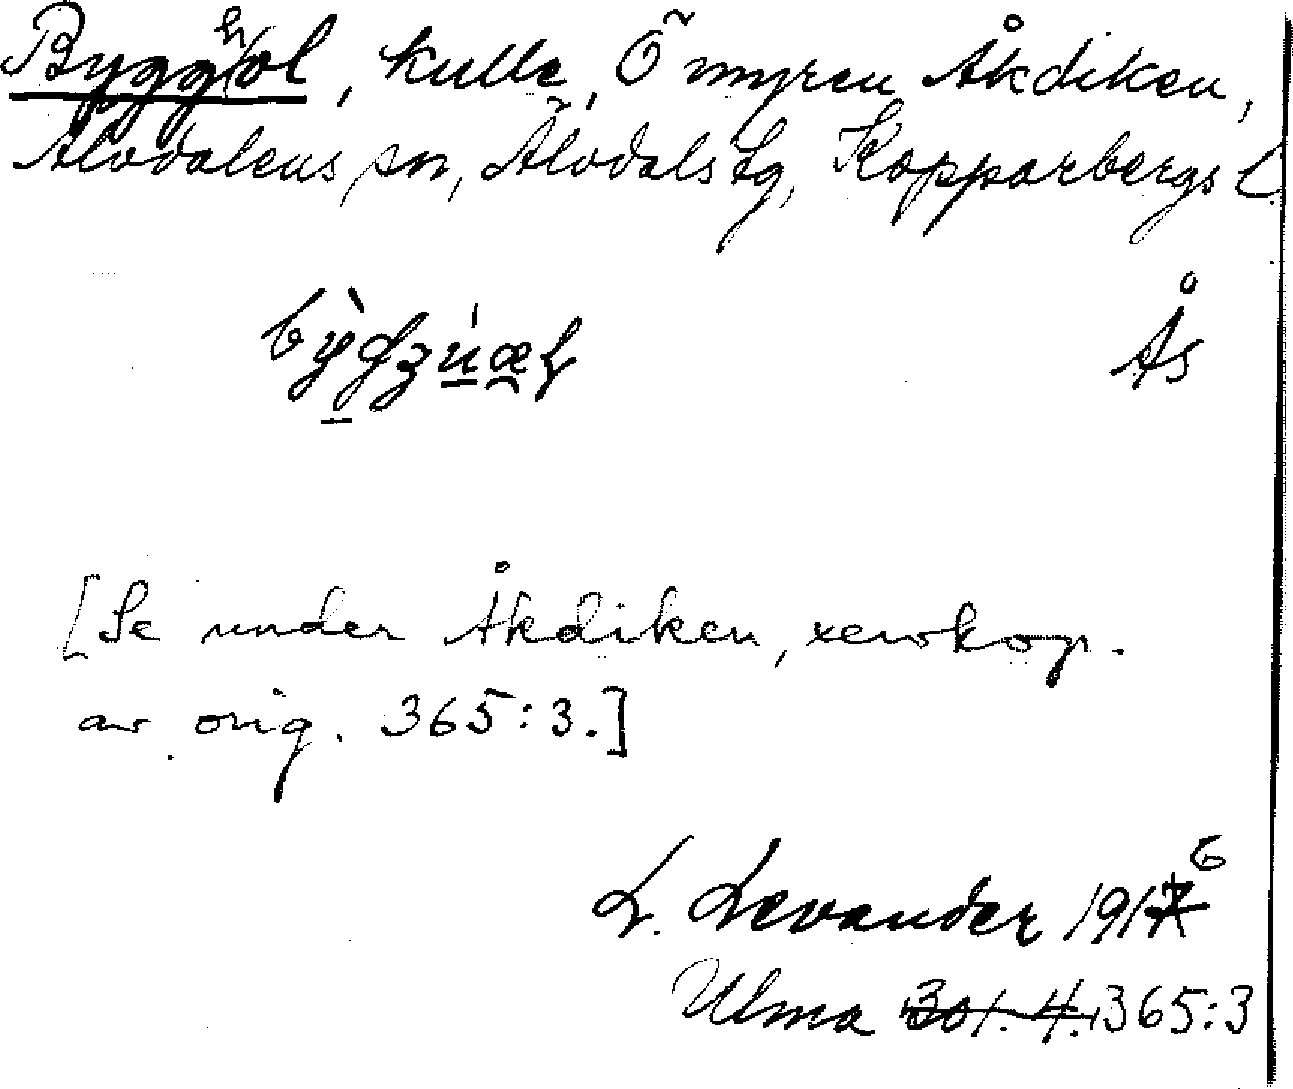 Bygghol, kulle, Ö myren Åkdiken,
Älvdalens sn, Älvdals tg, Kopparbergs l
Ås
[Se under Åkdiken, xerokop.
av orig. 365:3.]
L. Levander 1916
Ulma 301.4. 365:3